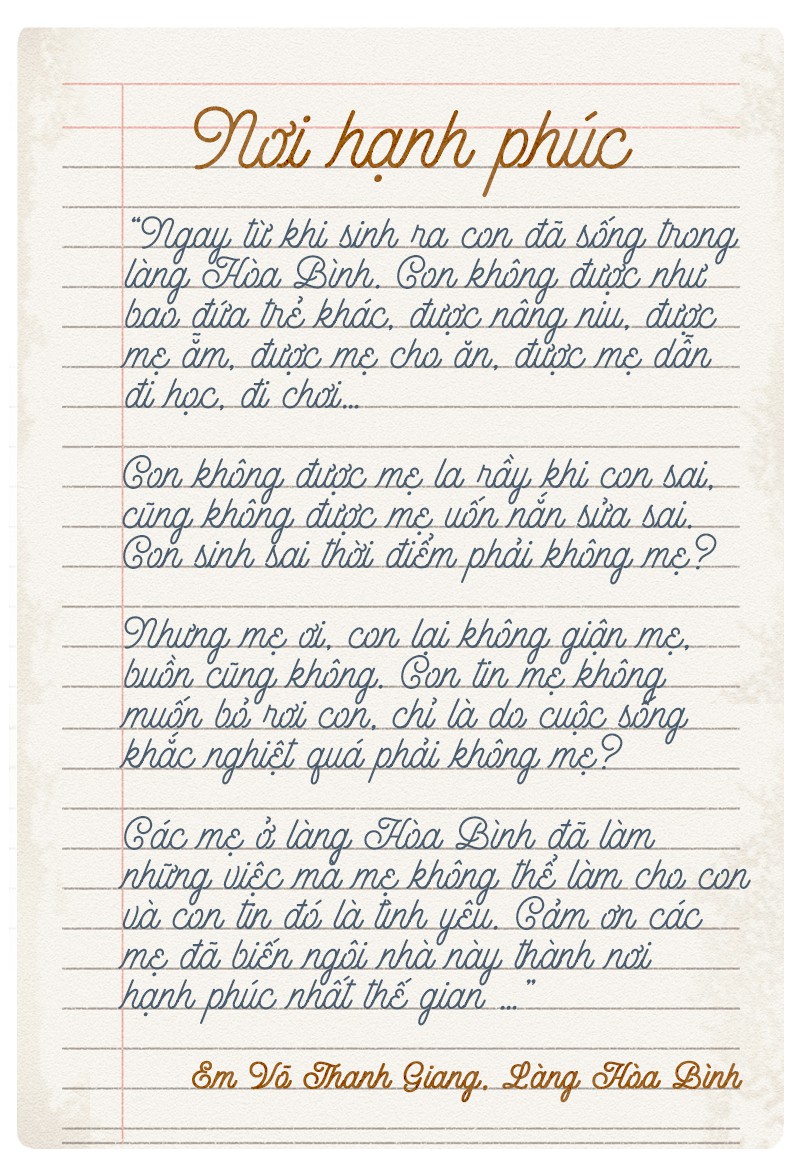 Nơi hạnh phúc
“Ngay từ khi sinh ra con đã sống trong
làng Hòa Bình. Con không được như
bao đứa trẻ khác, được nâng niu, được
mẹ ẵm, được mẹ cho ăn, được mẹ dẫn
đi học, đi chơi...
Con không được mẹ la rầy khi con sai,
cũng không được mẹ uốn nắn sửa sai.
Con sinh sai thời điểm phải không mẹ?
Nhưng mẹ ơi, con lại không giận mẹ,
buồn cũng không. Con tin mẹ không
muốn bỏ rơi con, chỉ là do cuộc sống
khắc nghiệt quá phải không mẹ?
Các mẹ ở làng Hòa Bình đã làm
những việc mà mẹ không thể làm cho con
và con tin đó là tình yêu. Cảm ơn các
mẹ đã biến ngôi nhà này thành nơi
hạnh phúc nhất thế gian ...”
Em Võ Thanh Giang, Làng Hòa Bình